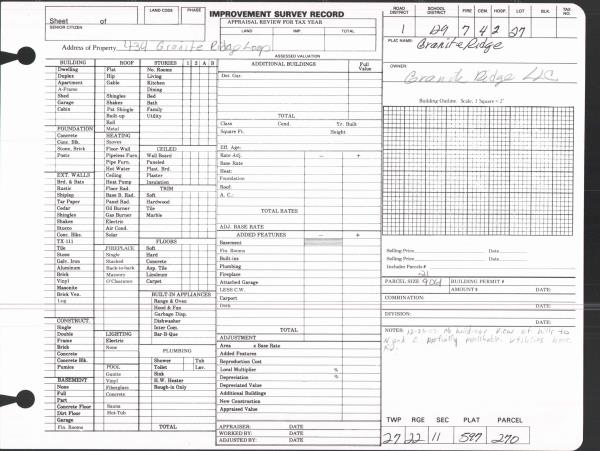 Sheet of
SENIOR CITIZEN
LAND CODE PHASE
IMPROVEMENT SURVEY RECORD
APPRAISAL REVIEW FOR TAX YEAR
LAND IMP. TOTAL
ASSESSED VALUATION
Address of Property 434 Granite Ridge Loop
ROAD DISTRICT SCHOOL DISTRICT FIRE CEM. HOSP. LOT BLK. TAX NO.
1 D9 7 4 2 27
PLAT NAME:
Granite Ridge
OWNER:
Granite Ridge LLC
Building Outline Scale: 1 Square = 2'
BUILDING ROOF STORIES 1 2 A B
Dwelling Flat No. Rooms
Duplex Hip Living
Apartment Gable Kitchen
A-Frame Dining
Shed Shingles Bed
Garage Shakes Bath
Cabin Pat Shingle Family
Built-up Utility
Roll
FOUNDATION Metal
Concrete HEATING
Conc. Blk. Stoves CEILED
Stone, Brick Floor Wall Wall Board
Posts Pipeless Furn. Paneled
Pipe Furn. Plast. Brd.
Hot Water Plaster
EXT. WALLS Ceiling Insulation
Brd. & Bats Heat Pump TRIM
Rustic Floor Rad. Soft
Shiplap Base B. Rad. Hardwood
Tar Paper Panel Rad. Tile
Cedar Oil Burner Marble
Shingles Gas Burner
Shakes Electric
Stucco Air Cond.
Conc. Blks. Solar FLOORS
TX-111 Soft
Tile FIREPLACE Hard
Stone Single Concrete
Galv. Iron Stacked Asp. Tile
Aluminum Back-to-back Linoleum
Brick Masonry Carpet
Vinyl O'Clearance
Masonite
Brick Ven.
Log
BUILT-IN APPLIANCES
Range & Oven
Hood & Fan
Garbage Disp.
Dishwasher
Inter Com.
Bar-B-Que
CONSTRUCT.
Single
Double LIGHTING
Frame Electric
Brick None
Concrete
Concrete Blk.
Pumice POOL
Gunite
BASEMENT Vinyl
None Fiberglass
Full Concrete
Part
Concrete Floor Sauna
Dirt Floor Hot-Tub
Garage
Fin. Rooms
PLUMBING
Shower Tub
Toilet Lav.
Sink
H.W. Heater
Rough-in Only
TOTAL
ADDITIONAL BUILDINGS Full Value
Det. Gar.
TOTAL
Class Cond. Yr. Built
Square Ft. Height
Eff. Age:
Rate Adj. − +
Base Rate
Heat:
Foundation
Roof:
A. C.:
TOTAL RATES
ADJ. BASE RATE
ADDED FEATURES − +
Basement
Fin. Rooms
Built-ins
Plumbing
Fireplace
Attached Garage
LESS C.W.
Carport
Deck
TOTAL
ADJUSTMENT
Area x Base Rate
Added Features
Reproduction Cost
Local Multiplier %
Depreciation %
Depreciated Value
Additional Buildings
New Construction
Appraised Value
APPRAISER: DATE
WORKED BY: DATE
ADJUSTED BY: DATE
Selling Price Date
Selling Price Date
Includes Parcels
.21
PARCEL SIZE BUILDING PERMIT #
AMOUNT $ DATE
COMBINATION:
DIVISION:
NOTES:
TWP RGE SEC PLAT PARCEL
27 22 11 587 270